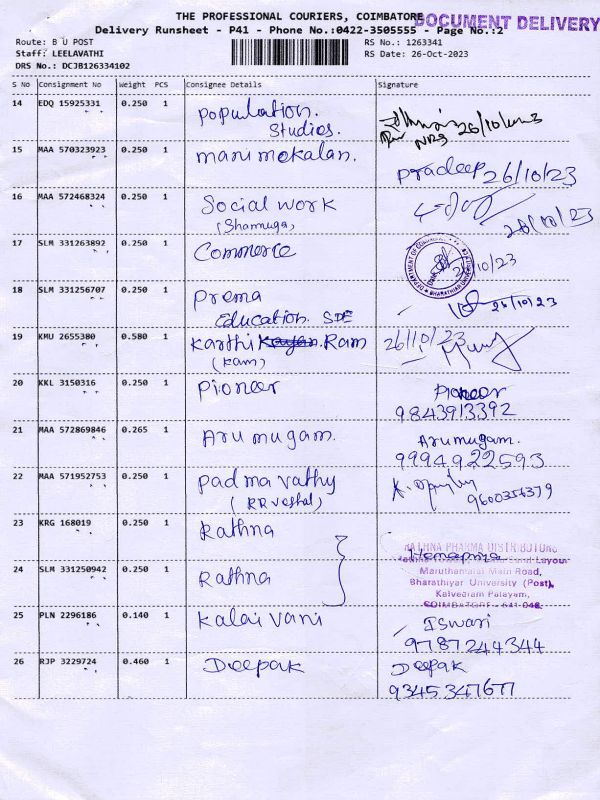 THE PROFESSIONAL COURIERS, COIMBATORE
DOCUMENT DELIVERY
Delivery Runsheet - P41 - Phone No.:0422-3505555 - Page No.:2
Route: B U POST
RS No.: 1263341
Staff: LEELAVATHI
RS Date: 26-Oct-2023
DRS No.: DCJB126334102
S No Consignment No Weight PCS Consignee Details Signature
14 EDQ 15925331 0.250 1 Population Studies. 26/10/2023
15 MAA 570323923 0.250 1 manimekalan. Pradeep 26/10/23
16 MAA 572468324 0.250 1 Social work (Shamuga) 26/10/23
17 SLM 331263892 0.250 1 Commerce 26/10/23
18 SLM 331256707 0.250 1 Prema Education SDE 26/10/23
19 KMU 2655380 0.580 1 Karthi Ram (Ram) 26/10/23
20 KKL 3150316 0.250 1 Pioneer Pioneer 9843913392
21 MAA 572869846 0.265 1 Arumugam. Arumugam. 9994922593
22 MAA 571952753 0.250 1 Padmavathy 9600356379
23 KRG 168019 0.250 1 Rathna
24 SLM 331250942 0.250 1 Rathna Hemapriya
RATHNA PHARMA DISTRIBUTORS
Layout
Maruthamalai Main Road,
Bharathiyar University (Post),
Kalveeram Palayam,
COIMBATORE - 641 046.
25 PLN 2296186 0.140 1 Kalai vani Iswari 9787244344
26 RJP 3229724 0.460 1 Deepak Deepak 9345347677